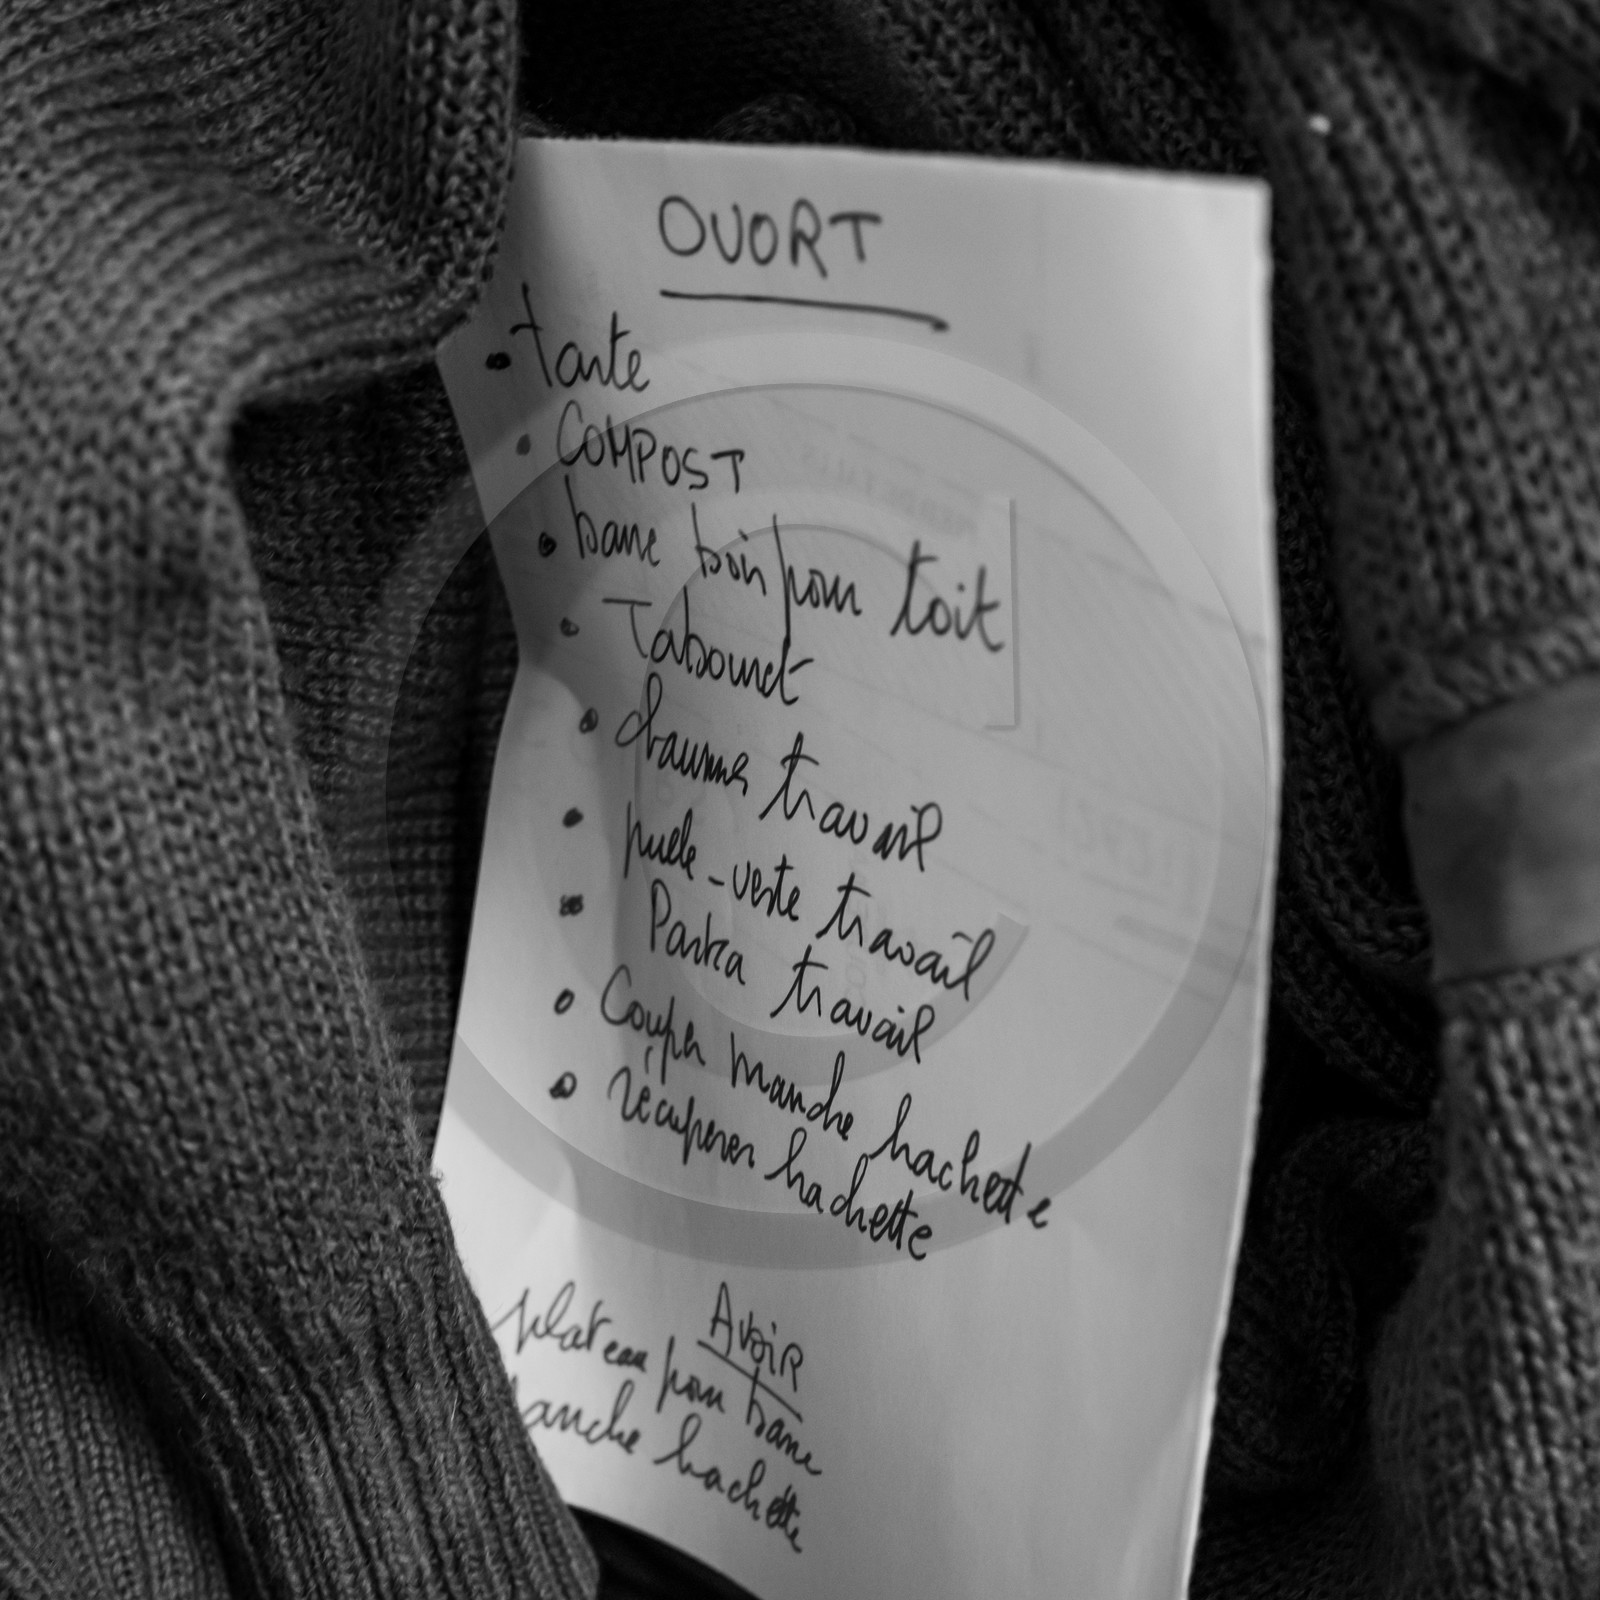 OUORT
• tarte
• COMPOST
• banc bois pour toit
• Tabouret
• travail
• veste travail
• Parka travail
• Couper manche hachette
• récuperer hachette
AvoiR
plateau pour banc
manche hachette